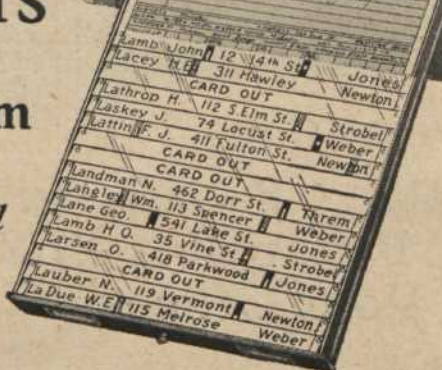 rs
Lamb John 12 14th St. Jones
Lacey H E 311 Hawley Newton
CARD OUT
Lathrop H. 112 S. Elm St. Strobel
Laskey J. 74 Locust St. Weber
Lattin F. J. 411 Fulton St. Newton
CARD OUT
CARD OUT
Landman N. 462 Dorr St. Threm
Langley Wm. 113 Spencer Weber
Lane Geo. 541 Lake St. Jones
Lamb H O. 35 Vine St. Strobe
Larsen O. 418 Parkwood Jones
CARD OUT
Lauber N. 119 Vermont Newton
La Due W. E 115 Melrose Weber
m